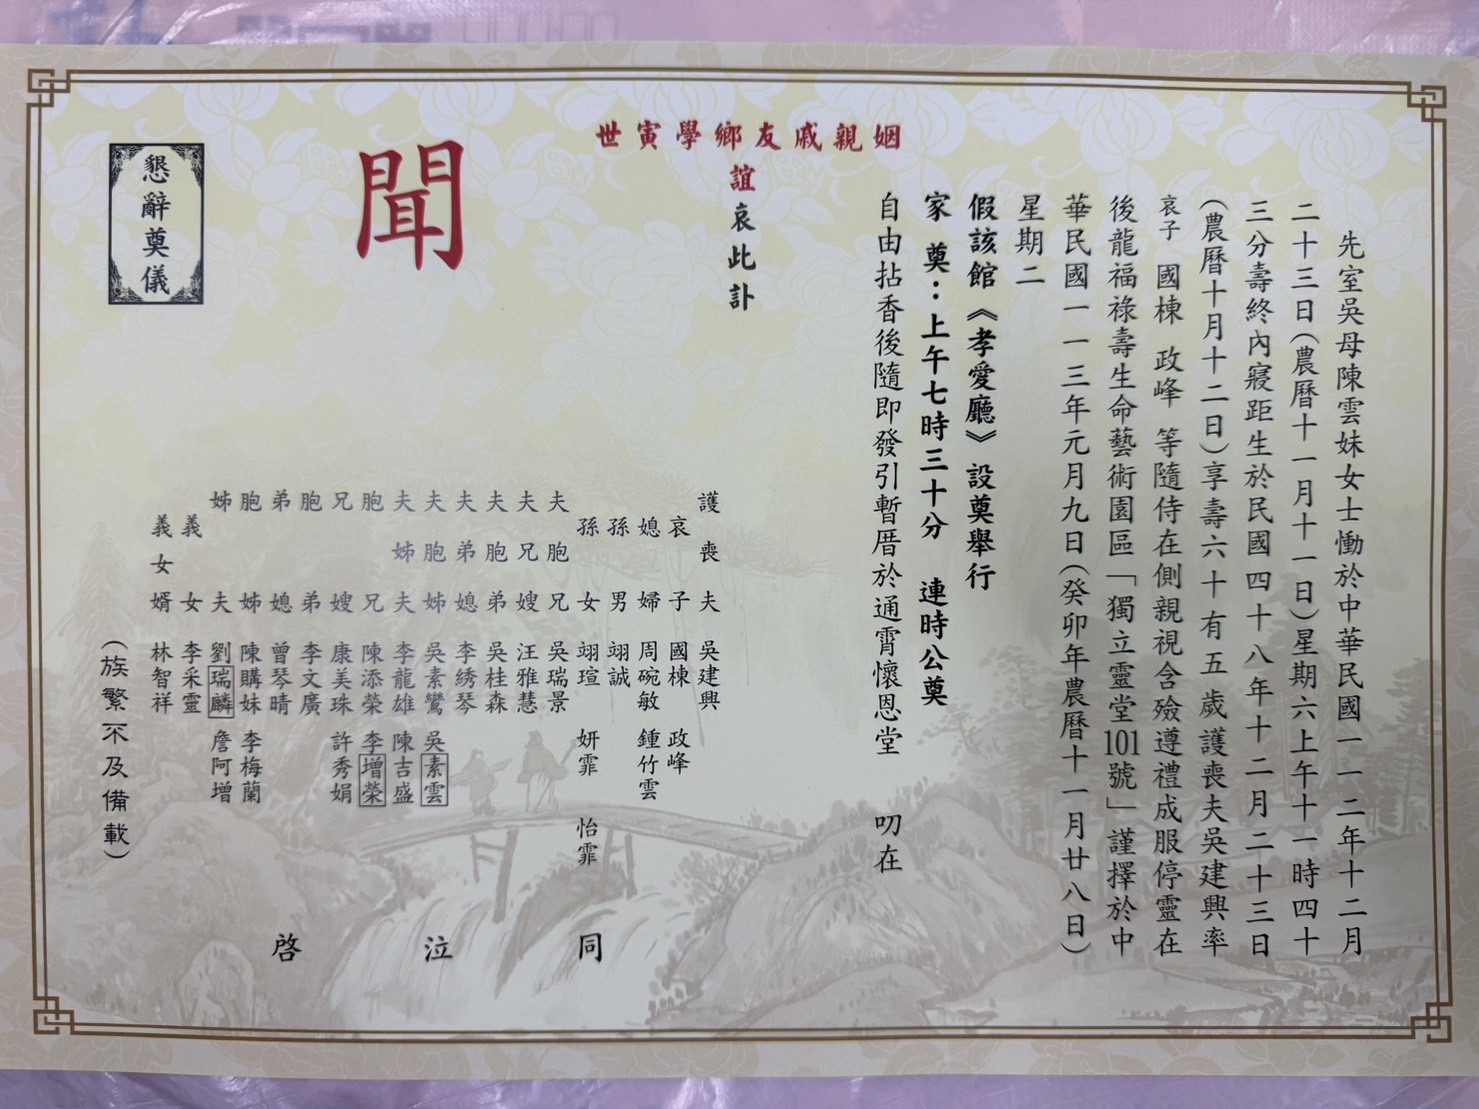 先室吳母陳雲妹女士慟於中華民國一一二年十二月
二十三日(農曆十一月十一日)星期六上午十一時四十
三分壽終內寢距生於民國四十八年十二月二十三日
(農曆十月十二日)享壽六十有五歲護喪夫吳建興率
哀子 國棟 政峰 等隨侍在側親視含殮遵禮成服停靈在
後龍福祿壽生命藝術園區「獨立靈堂101號」謹擇於中
華民國一一三年元月九日(癸卯年農曆十一月廿八日)
星期二
假該館《孝愛廳》設奠舉行
家 奠:上午七時三十分 連時公奠
自由拈香後隨即發引暫厝於通霄懷恩堂 叨在
姻親戚友鄉學寅世
誼哀此訃
聞
護喪夫 吳建興
哀子 國棟 政峰
媳婦 周碗敏 鍾竹雲
孫男 翊誠
孫女 翊瑄 妍霏 怡霏
夫胞兄 吳瑞景
夫兄嫂 汪雅慧
夫胞弟 吳桂森
夫弟媳 李綉琴
夫胞姊 吳素鸞 吳素雲
夫姊夫 李龍雄 陳吉盛
胞兄 陳添榮 李增榮
兄嫂 康美珠 許秀娟
胞弟 李文廣
弟媳 曾琴晴
胞姊 陳購妹 李梅蘭
姊夫 劉瑞麟 詹阿增
義女 李采靈
義女婿 林智祥
(族繁不及備載)
同泣啓
懇辭奠儀